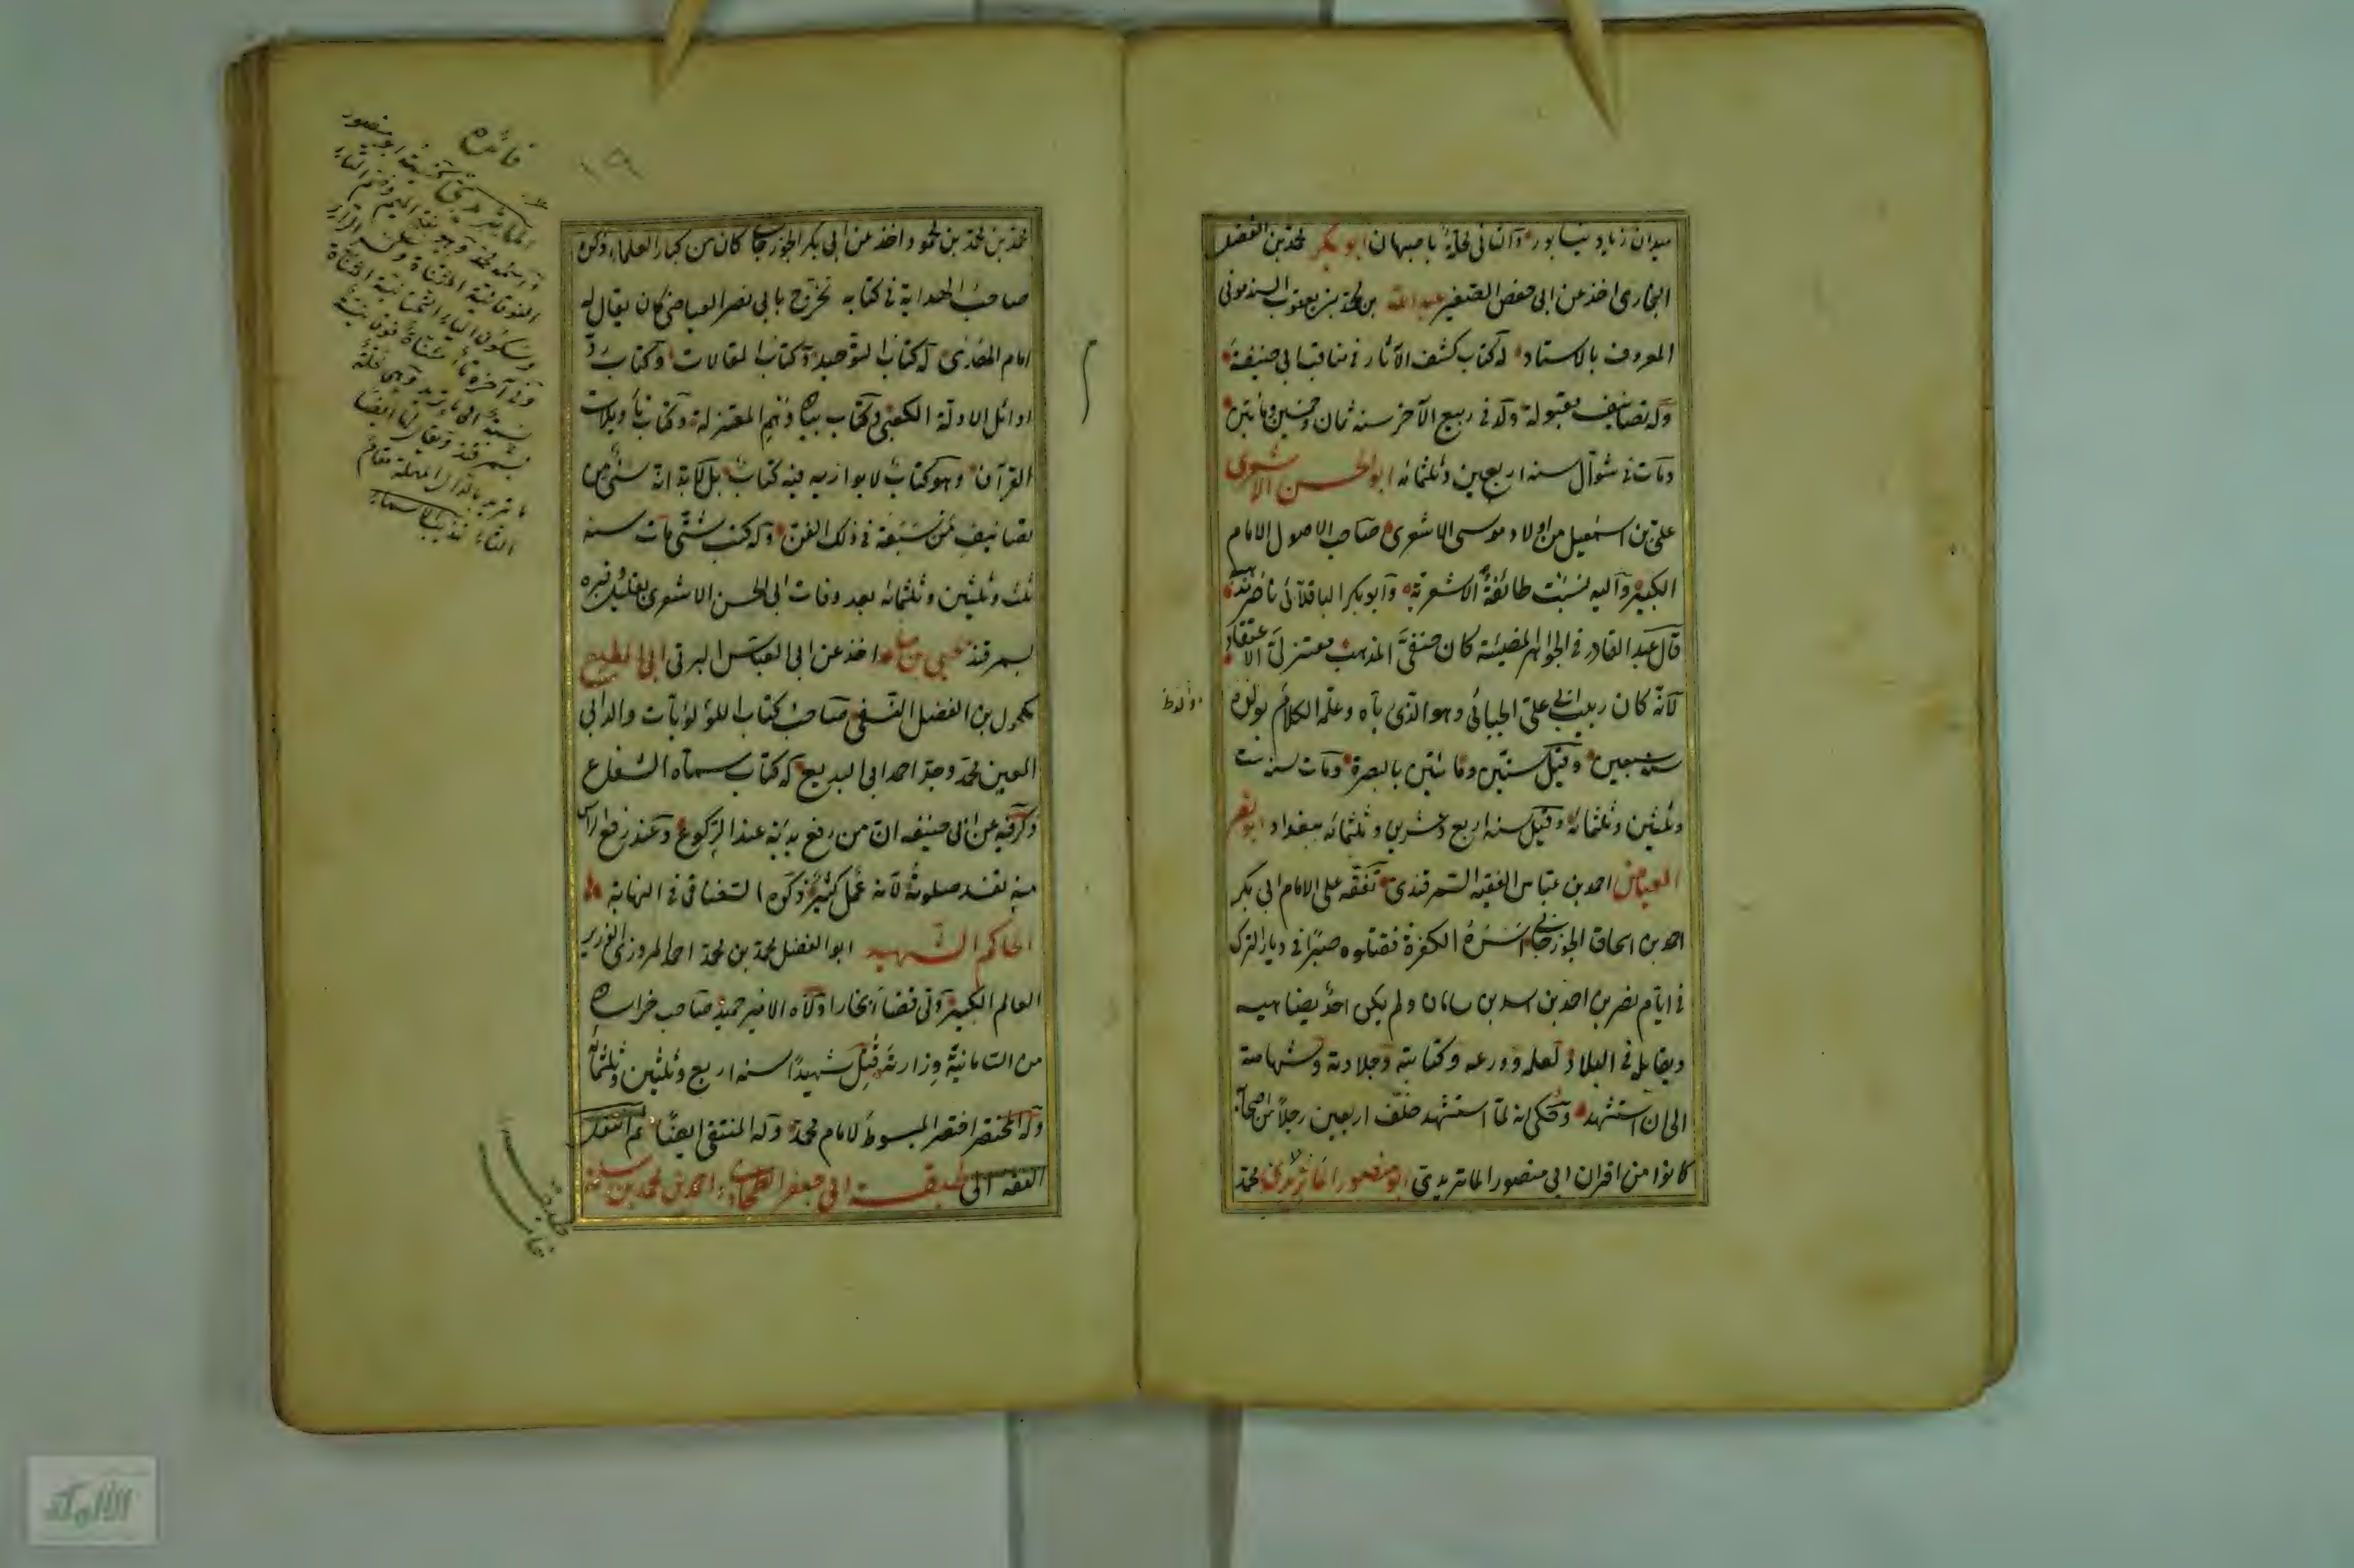 ميدان زياد نيسابور والثاني لحلة باصبهان ابو بكر محمد بن الفضل
البخاري اخذ عن ابي حفص الصغير عبد الله بن محمد بن يعقوب السبذموني
المعروف بالاستاد له كتاب كشف الآثار في مناقب ابي حنيفة
وله تصانيف مقبولة ولد في ربيع الآخر سنه ثمان وخمسين ومأتين
ومات في شوال سنه اربعين وثلثمائه ابو الحسن الاشعري
علي بن اسمعيل من اولاد موسى الاشعري صاحب الاصول الامام
الكبير واليه نسبت طائفة الاشعرية وابو بكر الباقلاني ناصر مذهبه
قال عبد القادر في الجواهر المضيئة كان حنفي المذهب معتزلي الاعتقاد
لانه كان ربيب ابي علي الجبائي وهو الذي رباه وعلمه الكلام مولده
سنة سبعين وقيل ستين ومائتين بالبصرة ومات سنه ست
وثلثين وثلثمائه وقيل سنه اربع وعشرين وثلثمائه ببغداد ابو نصر
العياض احمد بن عباس الفقيه السمرقندي تفقه على الامام ابي بكر
احمد بن اسحاق الجوزجاني اسره الكفرة فقتلوه صبرا في ديار الترك
في ايام نصر بن احمد بن اسد بن سامان ولم يكن احد يضاهيه
ويقابله في البلاد لعلمه وورعه وكتابته وجلادته وشهامته
الى ان استشهد وحكى انه لما استشهد خلف اربعين رجلا من اصحابه
كانوا من اقران ابي منصور الماتريدي ابو منصور الماتريدي محمد
محمد بن محمد بن محمود اخذ عن ابي بكر الجوزجاني كان من كبار العلماء ذكره
صاحب الهداية في كتابه تخرج بابي نصر العياضي كان يقال له
امام الهدى له كتاب التوحيد وكتاب المقالات وكتاب رد
اوائل الادلة الكعبي وكتاب بيان وهم المعتزلة وكتاب تأويلات
القرآن وهو كتاب لا يوازيه فيه كتاب بل لا يدانيه شئ من
تصانيف من سبقه في ذلك الفن وله كتب شتى مات سنه
ثلث وثلثين وثلثمائه بعد وفات ابي الحسن الاشعري بقليل قبره
بسمرقند اخذ عن ابي العباس البرتي ابي المطيع
مكحول بن الفضل النسفي صاحب كتاب اللؤلؤيات والد ابي
المعين محمد وجد احمد ابي البديع له كتاب سماه الشعاع
وذكر فيه عن ابي حنيفه ان من رفع يديه عند الركوع وعند رفع الرأس
منه تفسد صلوته لانه عمل كثير ذكره السغناقي في النهاية
الحاكم الشهيد ابو الفضل محمد بن محمد احمد المروزي الوزير
العالم الكبير ولي قضاء بخارا وولاه الامير حميد صاحب خراسان
من السامانية وزارته قتل شهيدا سنه اربع وثلثين وثلثمائه
وله المختصر اختصر المبسوط لامام محمد وله المنتقى ايضا ثم انتقل
الفقه الى طبقة ابي جعفر الطحاوي احمد بن محمد بن سلمة
فائدة
الماتريدي كنيته ابو منصور
واسمه محمد وهو بفتح الميم وضم التاء
الفوقانية المثناة وكسر الراء
وسكون الياء التحتانية المثناة
وفي آخره تاء مثناة فوقانية
نسبة الى ماتريد وهي محلة
بسمرقند ويقال لها ايضا
ماتريد بالدال المهملة مقام
التاء تهذيب الاسماء